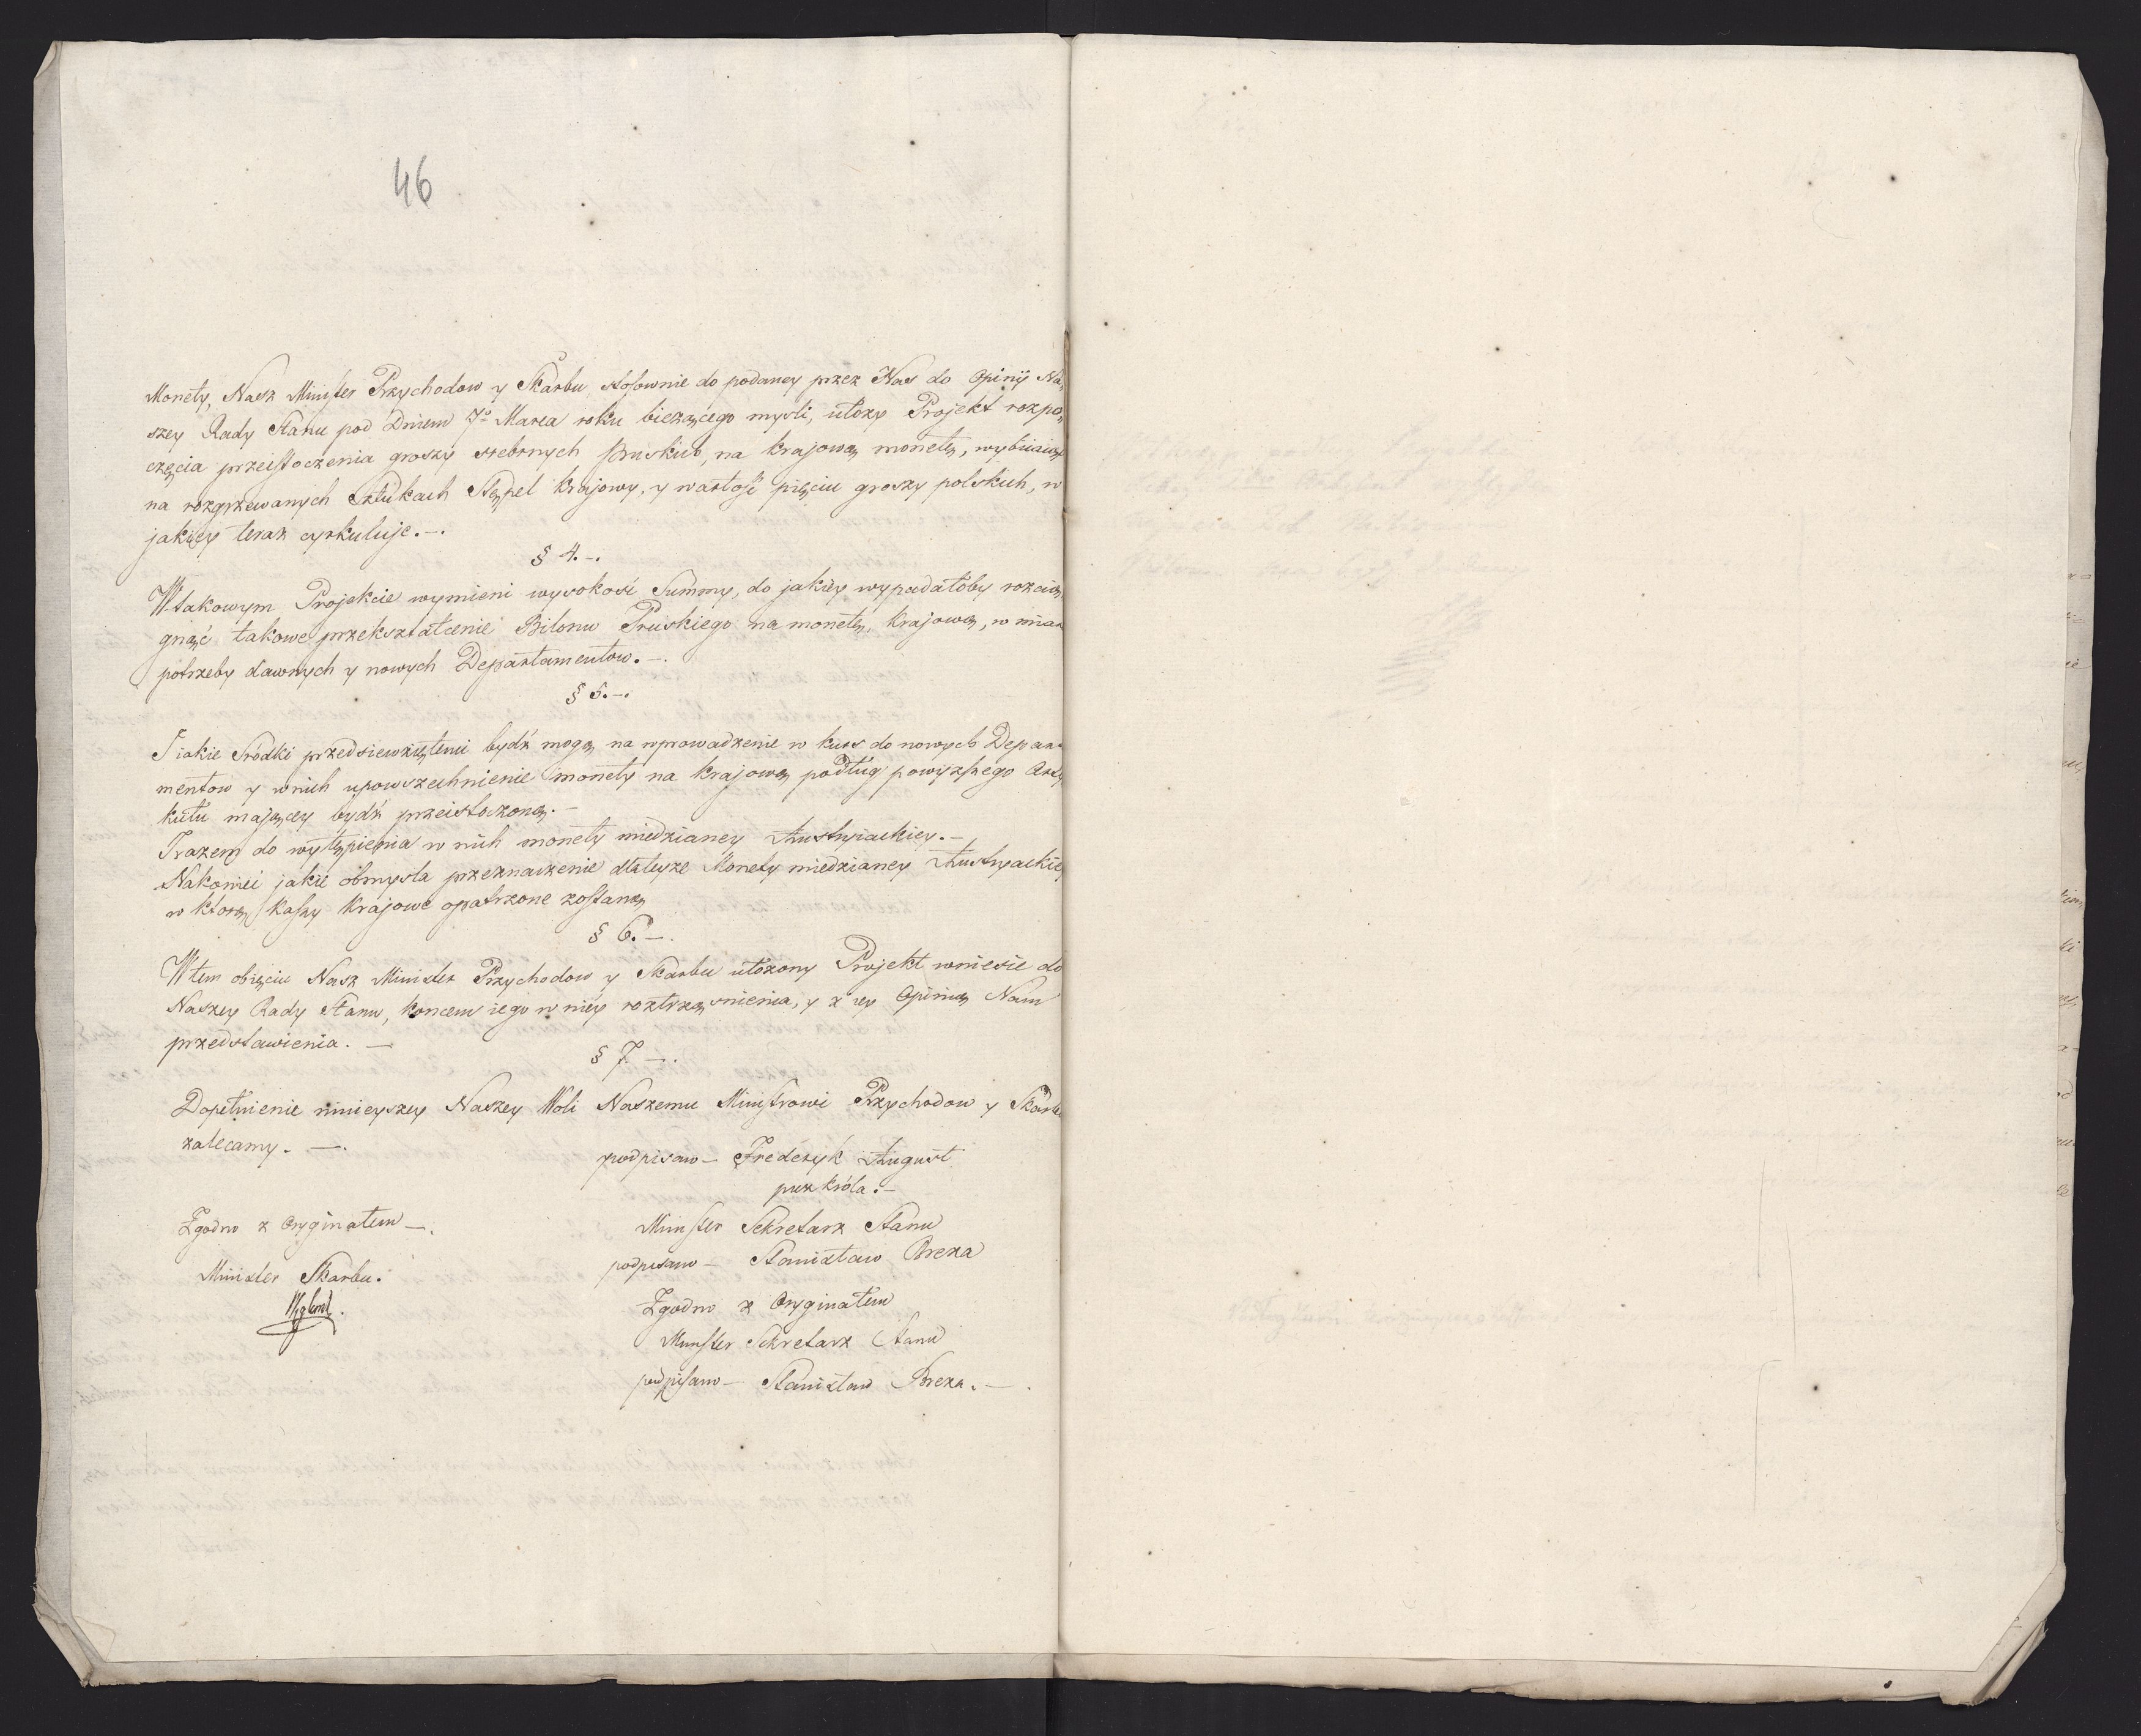 46
Monety, Nasz Minister Przychodow y Skarbu, stosownie do podaney przez Nas do Opinij Na,
szey Rady Stanu pod Dniem 7º Marca roku bieżącego mysli, ułoży Projekt rozpo,
częcia przeistoczenia groszy srebrnych Pruskich, na krajową monetę, wybiiaiąc
na rozgrzewanych Sztukach Stępel Krajowy, y wartość pięciu groszy polskich, w
jakiey teraz cyrkuluje.–.
§ 4.–.
W takowym Projekcie wymieni wysokość Summy, do jakiey wypadałoby rozcią,
gnąć takowe przekształcenie Bilonu Pruskiego na monetę krajową, w miarę
potrzeby dawnych y nowych Departamentow.–.
§ 5.–.
I iakie Srodki przedsiewziętemi bydź mogą na wprowadzenie w kurs do nowych Depar
mentow y w nich upowszechnienie monety na krajową podług powyższego Arty
kułu maiącey bydź przeistoczoną.–
I razem do wytępienia w nich monety miedzianey Austryackiey.–
Nakoniec jakie obmysla przeznaczenie dla teyże Monety miedzianey Austryackiey
w którą Kassy Krajowe opatrzone zostaną
§ 6.–.
W tem obięciu Nasz Minister Przychodow y Skarbu ułożony Projekt wniesie do
Naszey Rady Stanu, koncem iego w niey roztrząsnienia, y z iey Opinią Nam
przedstawienia.–
§ 7–.
Dopełnienie ninieyszey Naszey Woli Naszemu Ministrowi Przychodow y Skarbu
zalecamy.–.
podpisano – Frederyk August
przez Króla.–
Zgodno z Oryginałem–.
Minister Sekretarz Stanu
podpisano – Stanisław Breza
Minister Skarbu.
Węgleński.
Zgodno z Oryginałem
Minister Sekretarz Stanu
podpisano – Stanisław Breza.–.